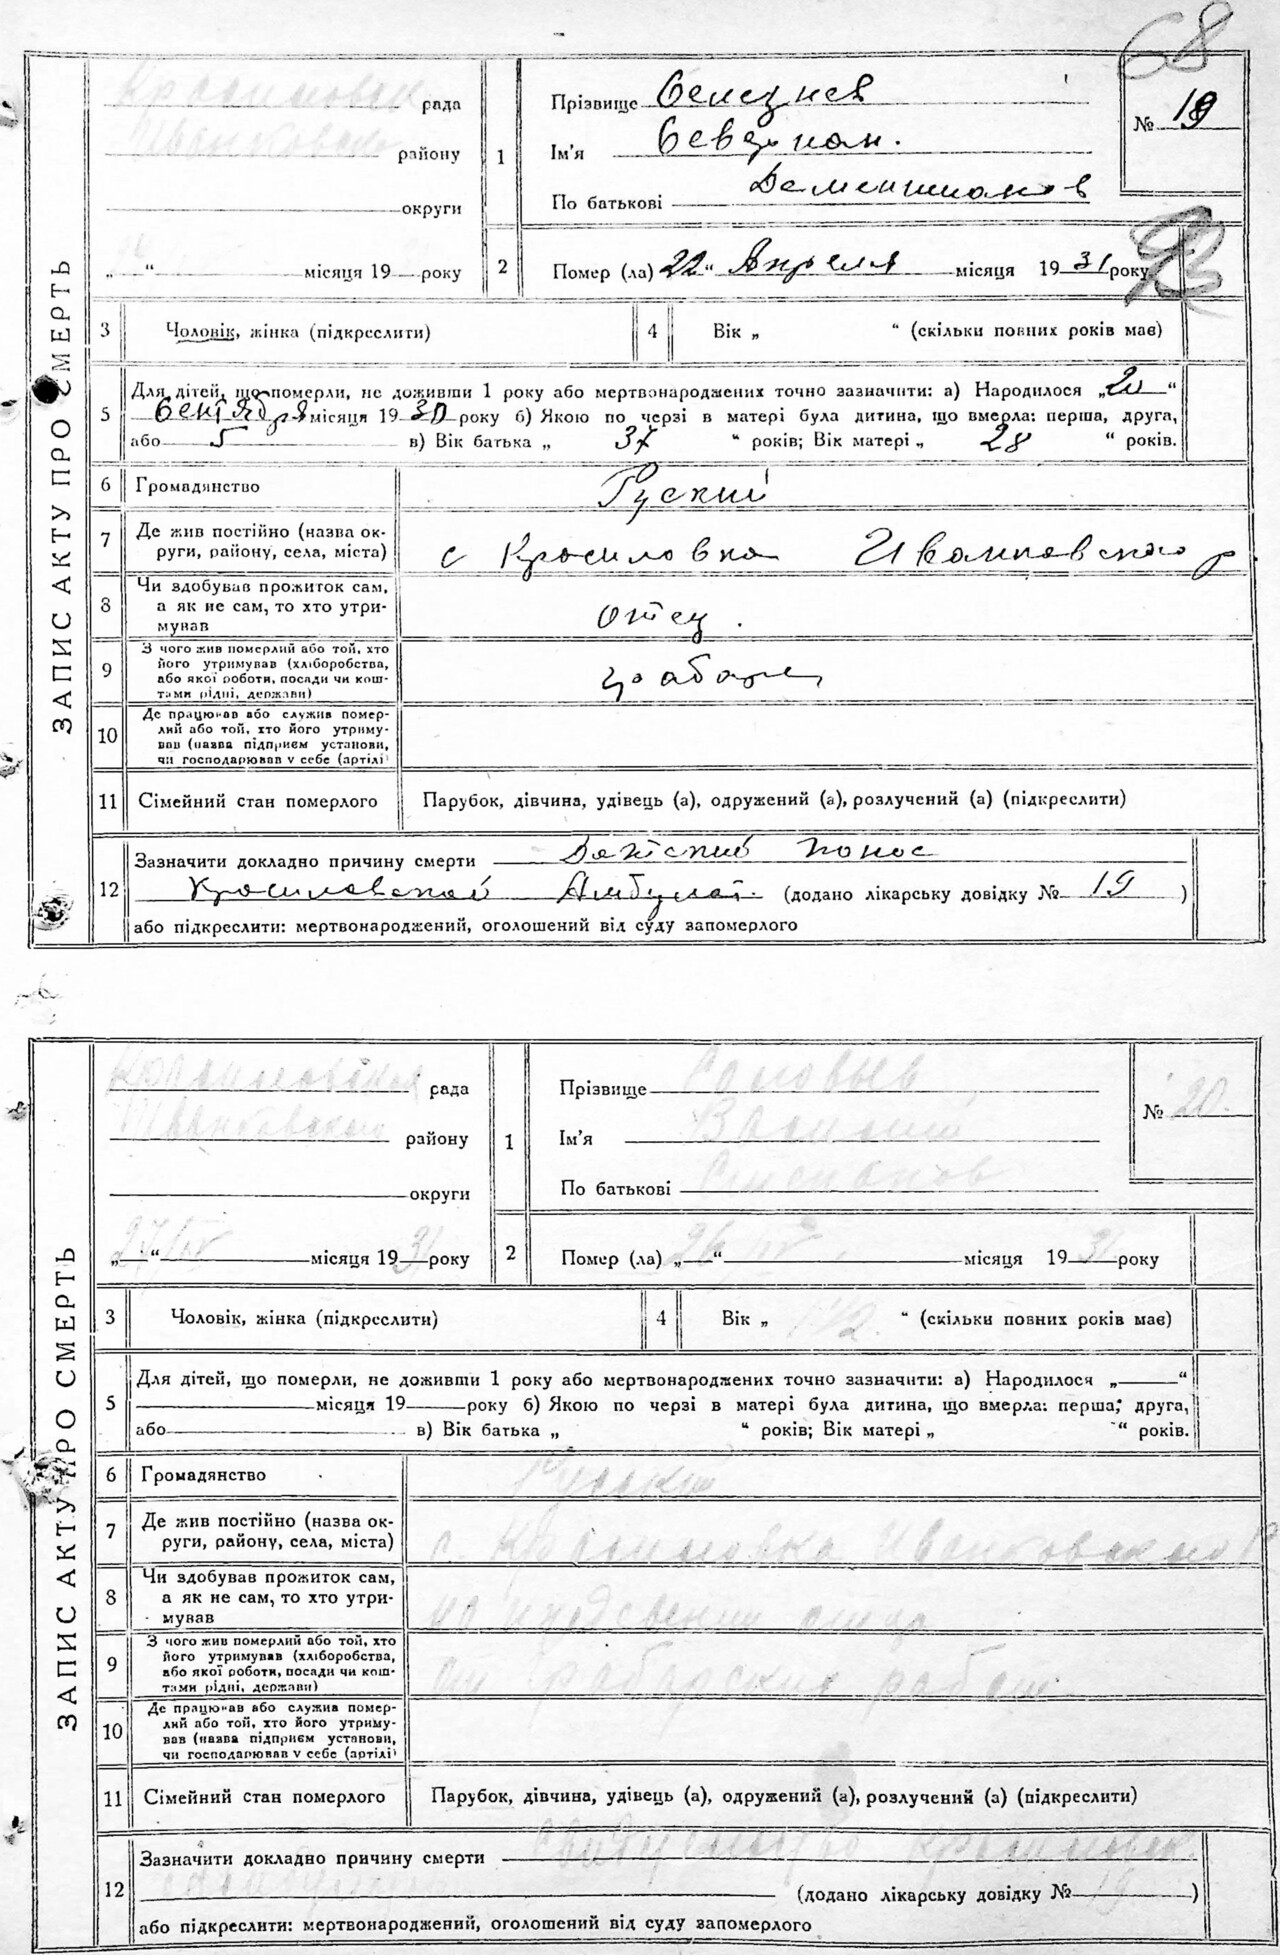 68
ЗАПИС АКТУ ПРО СМЕРТЬ
Красиловск рада
Иванковско району
округи
„ “ місяця 19 року
1
Прізвище Селезнев
Ім'я
По батькові
№ 19
2
Помер (ла) 22 “ Апреля місяця 1931 року
3 Чоловік, жінка (підкреслити)
4 Вік „ “ (скільки повних років має)
5 Для дітей, що померли, не доживши 1 року або мертвонароджених точно зазначити: а) Народилося „20“
Сентября місяця 1930 року б) Якою по черзі в матері була дитина, що вмерла: перша, друга,
або 5 в) Вік батька „ 37 “ років; Вік матері „ 28 “ років.
6 Громадянство Руский
7 Де жив постійно (назва ок-
руги, району, села, міста) с Красиловка Иванковского р.
8 Чи здобував прожиток сам,
а як не сам, то хто утри-
мував отец.
9 З чого жив померлий або той, хто
його утримував (хліборобства,
або якої роботи, посади чи кош-
тами рідні, держави)
10 Де працював або служив помер-
лий або той, хто його утриму-
вав (назва підприєм установи,
чи господарював у себе (артілі)
11 Сімейний стан померлого Парубок, дівчина, удівець (а), одружений (а), розлучений (а) (підкреслити)
12 Зазначити докладно причину смерти Детский понос
Красиловской Амбулат. (додано лікарську довідку № 19 )
або підкреслити: мертвонароджений, оголошений від суду запомерлого
ЗАПИС АКТУ ПРО СМЕРТЬ
Красиловская рада
Иванковского району
округи
„27“ IV місяця 1931 року
1
Прізвище Соловьев
Ім'я Василий
По батькові Степанов
№ 20.
2
Помер (ла) „26“ IV місяця 1931 року
3 Чоловік, жінка (підкреслити)
4 Вік „ 1 1/2. “ (скільки повних років має)
5 Для дітей, що померли, не доживши 1 року або мертвонароджених точно зазначити: а) Народилося „ “
місяця 19 року б) Якою по черзі в матері була дитина, що вмерла: перша, друга,
або в) Вік батька „ “ років; Вік матері „ “ років.
6 Громадянство Руский
7 Де жив постійно (назва ок-
руги, району, села, міста) с. Красиловка Иванковского р
8 Чи здобував прожиток сам,
а як не сам, то хто утри-
мував на отца
9 З чого жив померлий або той, хто
його утримував (хліборобства,
або якої роботи, посади чи кош-
тами рідні, держави) работ
10 Де працював або служив помер-
лий або той, хто його утриму-
вав (назва підприєм установи,
чи господарював у себе (артілі)
11 Сімейний стан померлого Парубок, дівчина, удівець (а), одружений (а), розлучений (а) (підкреслити)
12 Зазначити докладно причину смерти
(додано лікарську довідку № 19 )
або підкреслити: мертвонароджений, оголошений від суду запомерлого